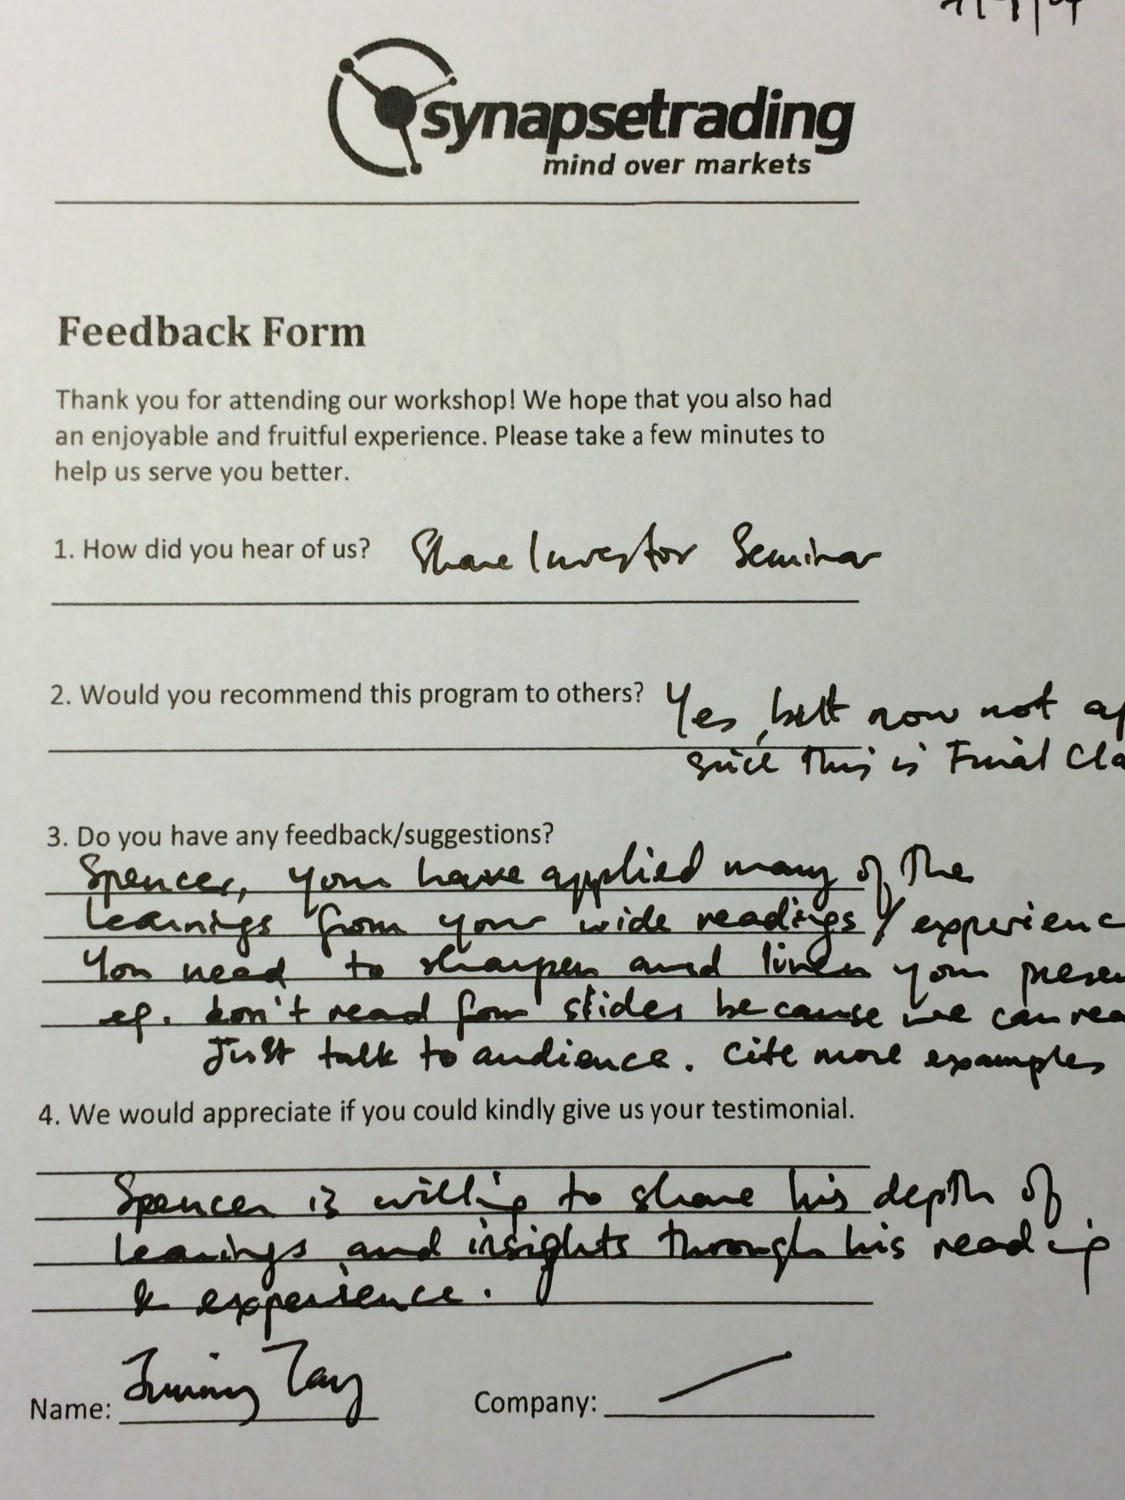 synapsetrading
mind over markets
Feedback Form
Thank you for attending our workshop! We hope that you also had
an enjoyable and fruitful experience. Please take a few minutes to
help us serve you better.
1. How did you hear of us? Share Investor Seminar
2. Would you recommend this program to others? Yes, but now not
since this is Final
3. Do you have any feedback/suggestions?
Spencer, you have applied many of the
learnings from your wide readings /
You need to sharpen and your
eg. don't read from slides because we can
Just talk to audience. Cite more examples
4. We would appreciate if you could kindly give us your testimonial.
Spencer is willing to share his depth of
learnings and insights through his reading
& experience.
Name: Tay Company: